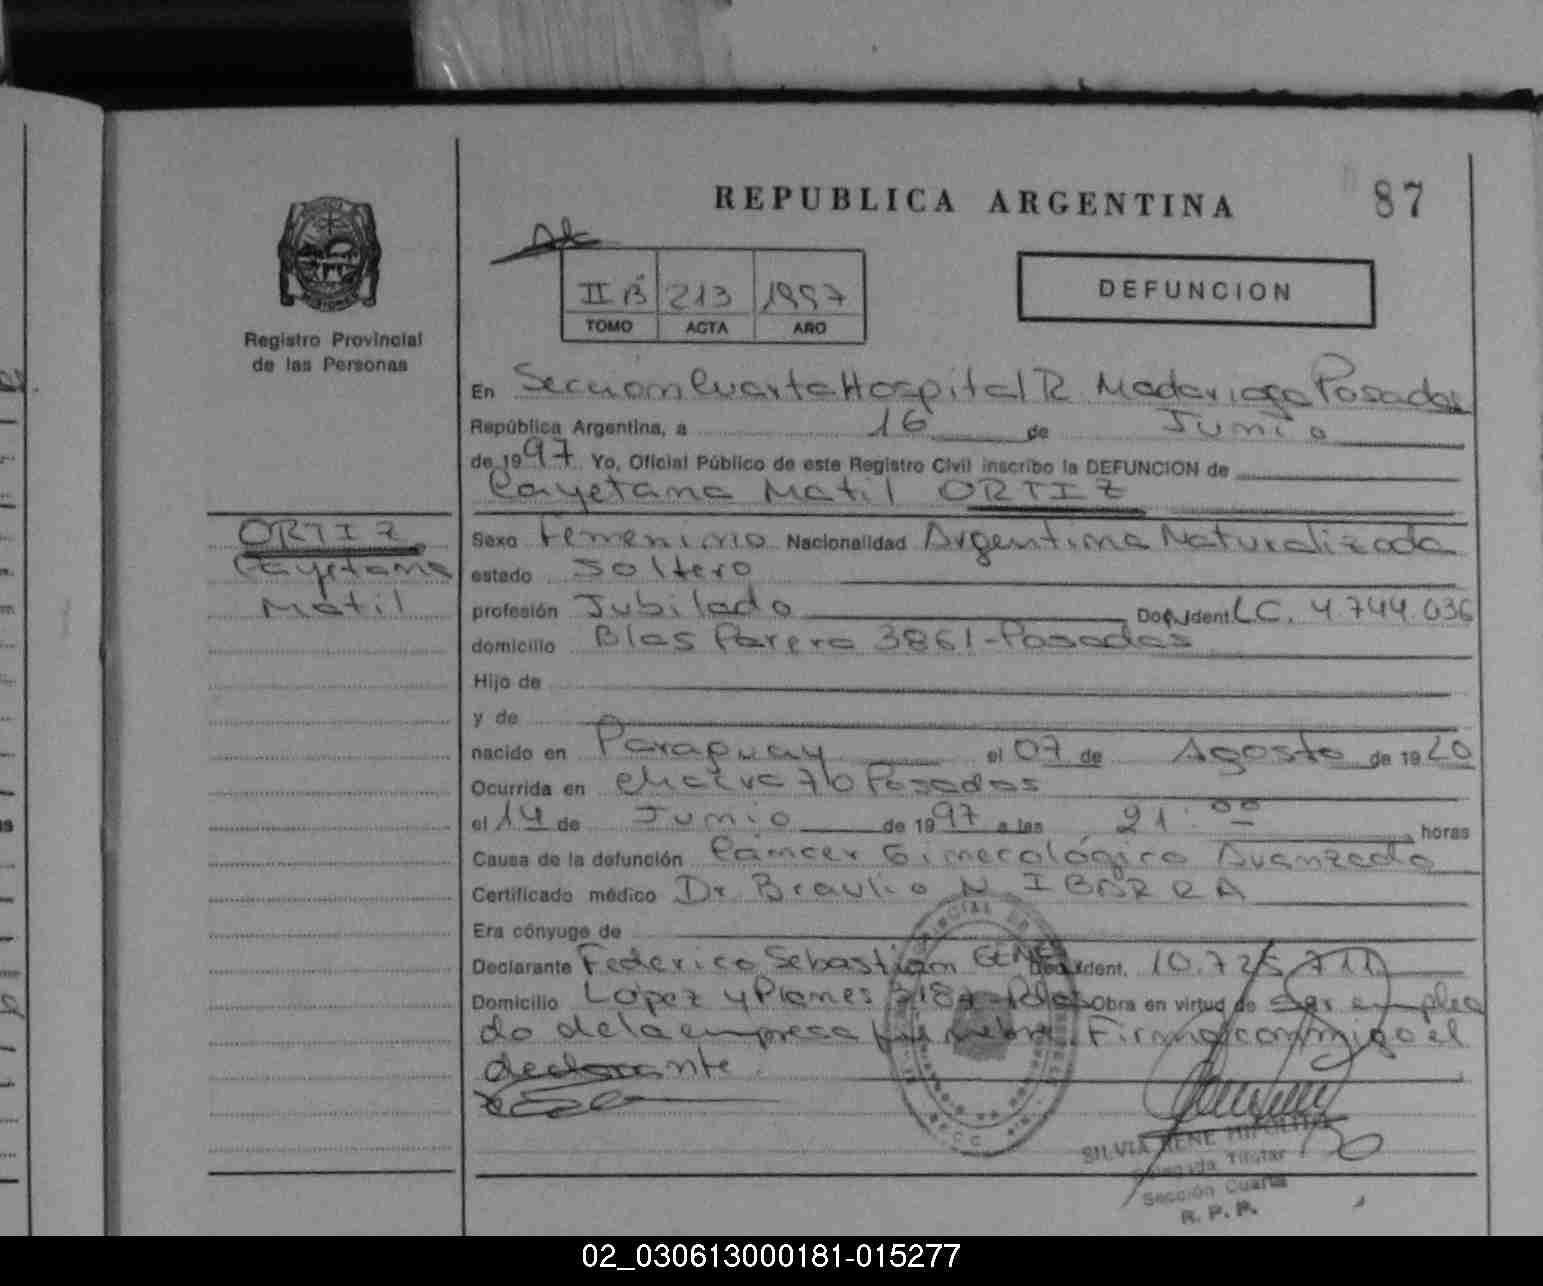 REPUBLICA ARGENTINA
87
II B 213 1997
TOMO ACTA AÑO
DEFUNCION
Registro Provincial
de las Personas
En Seccion Cuarta Hospital R. Madariaga Posadas
República Argentina, a 16 de Junio
de 1997 Yo, Oficial Público de este Registro Civil inscribo la DEFUNCION de
Cayetana Matil ORTIZ
ORTIZ
Cayetana
Matil
Sexo Femenino Nacionalidad Argentina Naturalizada
estado Soltero
profesión Jubilado Doc. Ident. LC. 4.744.036
domicilio Blas Parera 3861-Posadas
Hijo de
y de
nacido en Paraguay el 07 de Agosto de 1920
Ocurrida en Posadas
el 14 de Junio de 1997 a las 21:00 horas
Causa de la defunción Cáncer Ginecológico Avanzado
Certificado médico Dr. Braulio N. IBARRA
Era cónyuge de
Declarante Federico Sebastian Doc. Ident. 10.725.711
Domicilio López y Planes Obra en virtud de ser emplea
do de la empresa Firma conmigo el
declarante.
SILVIA RENE HIPOLITO
Delegada Titular
Sección Cuarta
R. P. P.
02_030613000181-015277